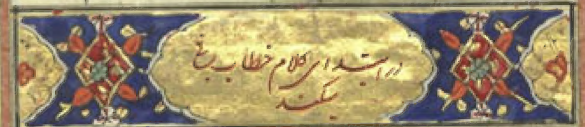 در ابتدای کلام خطاب بخ
میکند